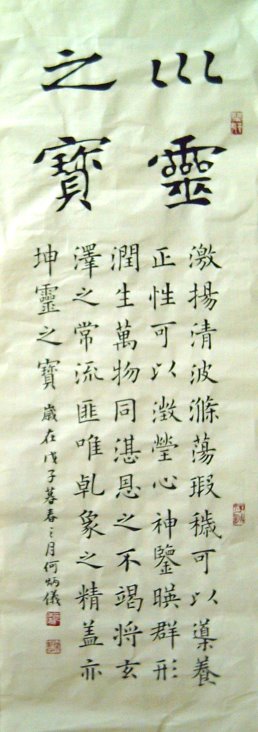 巛靈
之寶
激揚清波滌蕩瑕穢可以導養
正性可以澂瑩心神鑒暎群形
潤生萬物同湛恩之不竭將玄
澤之常流匪唯乹象之精蓋亦
坤靈之寶 歲在戊子暮春之月何炳儀